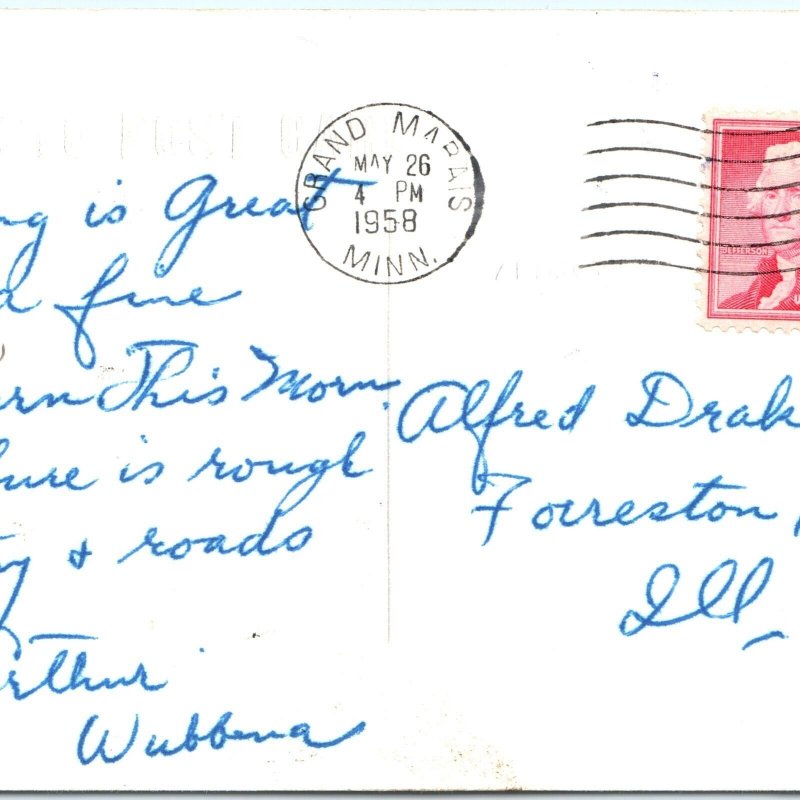 GRAND MARAIS
MAY 26
4 PM
1958
MINN.
JEFFERSON
is Great
fine
This Morn.
is rough
& roads
Arthur
Wubbena
Alfred Drak
Forreston
Ill